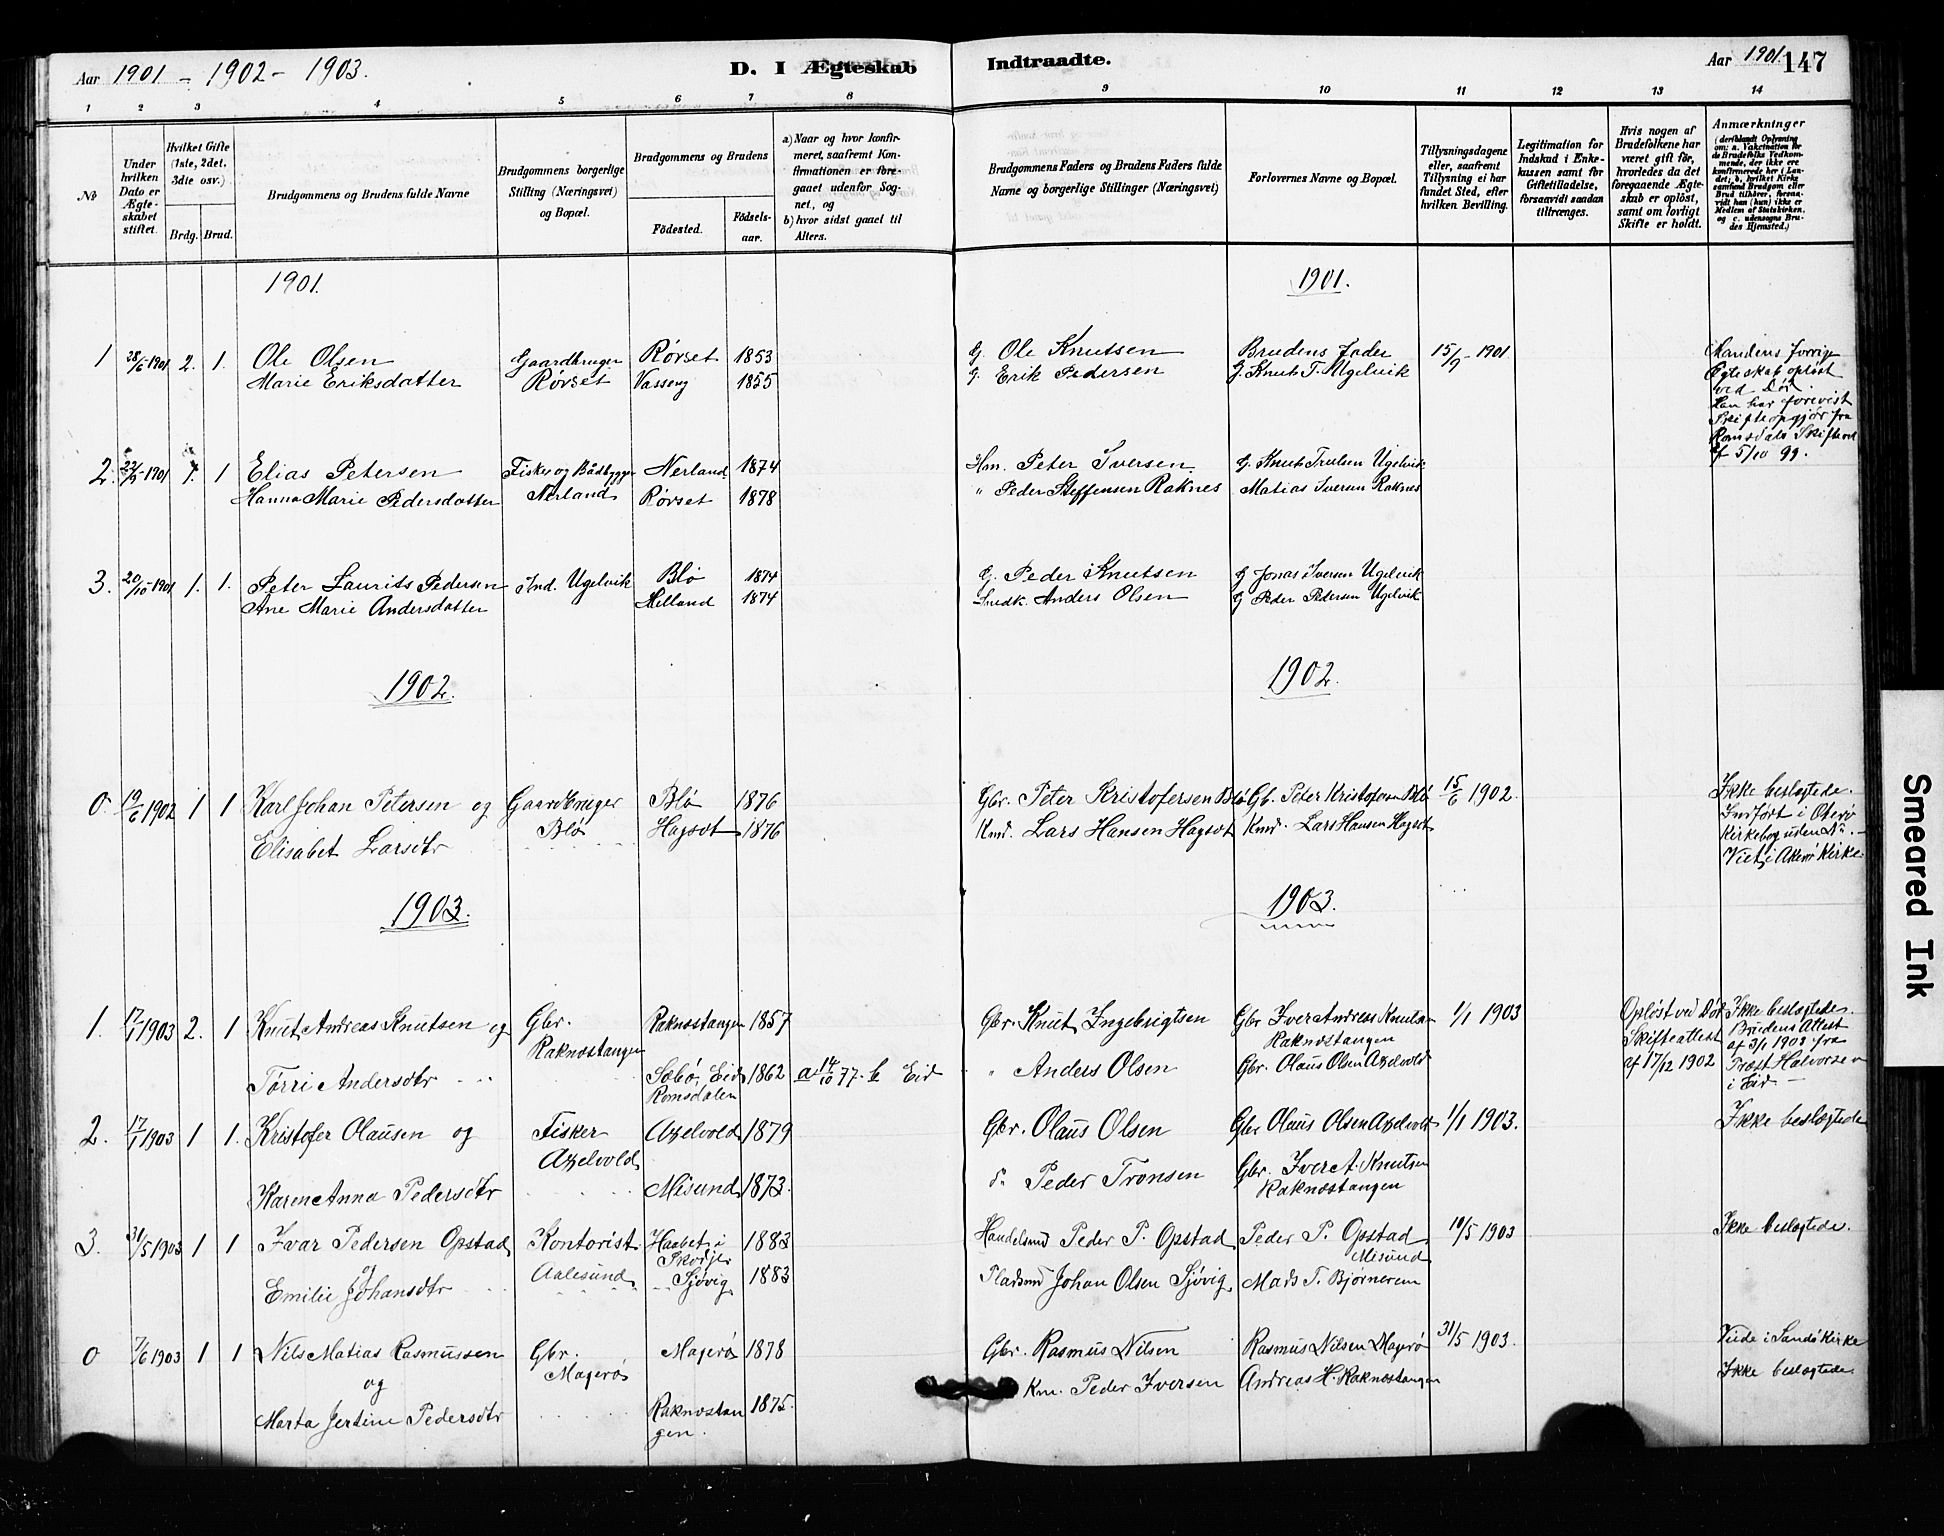 Aar 1901 - 1902 - 1903. D. I Ægteskab Indtraadte. Aar 1901. 147
1 2 3 4 5 6 7 8 9 10 11 12 13 14
№
Under hvilken Dato er Ægteskabet stiftet.
Hvilket Gifte (1ste, 2det, 3die osv.)
Brdg. Brud.
Brudgommens og Brudens fulde Navne
Brudgommens borgerlige Stilling (Næringsvei) og Bopæl.
Brudgommens og Brudens
Födested. Födselsaar.
a) Naar og hvor konfirmeret, saafremt Konfirmationen er foregaaet udenfor Sognet, og
b) hvor sidst gaaet til Alters.
Brudgommens Faders og Brudens Faders fulde Navne og borgerlige Stillinger (Næringsvei)
Forlovernes Navne og Bopæl.
Tillysningsdagene eller, saafremt Tillysning ei har fundet Sted, efter hvilken Bevilling.
Legitimation for Indskud i Enkekassen samt for Giftetilladelse, forsaavidt saadan tiltrænges.
Hvis nogen af Brudefolkene har været gift för, hvorledes da det foregaaende Ægteskab er oplöst, samt om lovligt Skifte er holdt.
Anmærkninger (deriblandt Oplysning om: a. Vakcination for de Brudefolks Vedkommende, der ikke ere konfirmerede her i Landet; b. hvilket Kirkesamfund Brudgom eller Brud tilhører, forsaavidt han (hun) ikke er Medlem af Statskirken, og c. udensogns Brudes Hjemsted.)
1901. 1901.
1 28/6-1901 2. 1. Ole Olsen Gaardbruger Rørset 1853 G. Ole Knutsen Brudens Fader 15/9-1901 Mandens forrige
Marie Eriksdatter Rørset Vasseng 1855 G. Erik Pedersen G. Knut T. Ugelvik Ægteskab opløst
ved Død.
Han har forevist
Skifteopgjør fra
Romsdals Skifteret
af 5/10 99.
2. 22/9-1901 1. 1 Elias Petersen Fisker og Bådbygger Nerland 1874 Hm. Peter Iversen G. Knut Trulsen Ugelvik
Hanna Marie Pedersdatter Nerland Rørset 1878 " Peder Steffensen Raknes Matias Iversen Raknes
3. 20/10-1901 1. 1. Peter Laurits Pedersen Ind. Ugelvik Blø 1874 G. Peder Knutsen G Jonas Iversen Ugelvik
Ane Marie Andersdatter Helland 1874 Snedk. Anders Olsen G Peder Pedersen Ugelvik
1902. 1902.
0 19/6 1902 1 1 Karl Johan Petersen og Gaardbruger Blø 1876 Gbr. Peter Kristofersen Blø Gb. Peter Kristofersen Blø 15/6 1902. Ikke beslægtede.
Elisabet Larsdtr Blø Hagset 1876 Kmd. Lars Hansen Hagset Kmd. Lars Hansen Hagset Indført i Oterø
Kirkebog uden Nr. -
Viet i Akerø Kirke.
1903. 1903.
1. 17/1 1903 2. 1 Knut Andreas Knutsen og Gbr. Raknestangen 1857 Gbr. Knut Ingebrigtsen Gbr Iver Andreas Knutsen 1/1 1903 Opløst ved Død Ikke beslægtede.
Raknestangen Raknestangen Skifteattest Brudens Attest
af 17/12 1902 af 3/1 1903 fra
Torri Andersdtr Sæbø, Eid 1862 a. 14/10 77. b Eid " Anders Olsen Gbr. Olaus Olsen Axelvold Prost Halvorsen
Romsdalen i Eid -
2. 17/1 1903 1 1. Kristofer Olausen og Fisker Axelvold 1879 Gbr. Olaus Olsen Gbr Olaus Olsen Axelvold 1/1 1903. Ikke beslægtede
Axelvold
Karen Anna Pedersdtr Misund 1873. do Peder Tronsen Gbr. Iver A. Knutsen
Raknestangen
3. 31/5 1903 1 1 Ivar Pedersen Opstad Kontorist Haabet i 1883 Handelsmd Peder P. Opstad Peder P. Opstad 10/5 1903 Ikke beslægtede.
og Aalesund Skodje Misund
Emilie Johansdtr Sjøvig 1883 Pladsmd Johan Olsen Sjøvig Mads T. Bjørnerem
0 7/6 1903 1 1 Nils Matias Rasmussen Gbr. Magerø 1878 Gbr. Rasmus Nilsen Rasmus Nilsen Magerø 31/5 1903. Viede i Sandø Kirke
og Magerø Ikke beslægtede
Marta Jertine Pedersdtr Raknestangen. 1875. Km. Peder Iversen Andreas H. Raknestangen
Smeared Ink